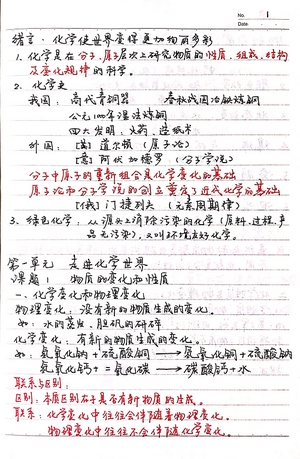 No. 1
Date
绪言：化学使世界变得更加绚丽多彩
1. 化学是在分子、原子层次上研究物质的性质、组成、结构
及变化规律的科学。
2. 化学史
我国：商代青铜器 春秋战国冶铁炼钢
公元1000年湿法炼铜
四大发明：火药、造纸术
外国：[英] 道尔顿（原子论）
[意] 阿伏加德罗（分子学说）
分子中原子的重新组合是化学变化的基础
原子论和分子学说的创立奠定了近代化学的基础
[俄] 门捷列夫（元素周期律）
3. 绿色化学：从源头上消除污染的化学（原料、过程、产
品无污染），又叫环境友好化学。
第一单元 走进化学世界
课题1 物质的变化和性质
一、化学变化和物理变化
物理变化：没有新的物质生成的变化。
如：水的蒸发、胆矾的研碎
化学变化：有新的物质生成的变化。
如：氢氧化钠＋硫酸铜 → 氢氧化铜＋硫酸钠
氢氧化钙＋二氧化碳 → 碳酸钙＋水
联系与区别：
区别：本质区别在于是否有新物质的生成。
联系：化学变化中往往会伴随着物理变化。
物理变化中往往不会伴随化学变化。